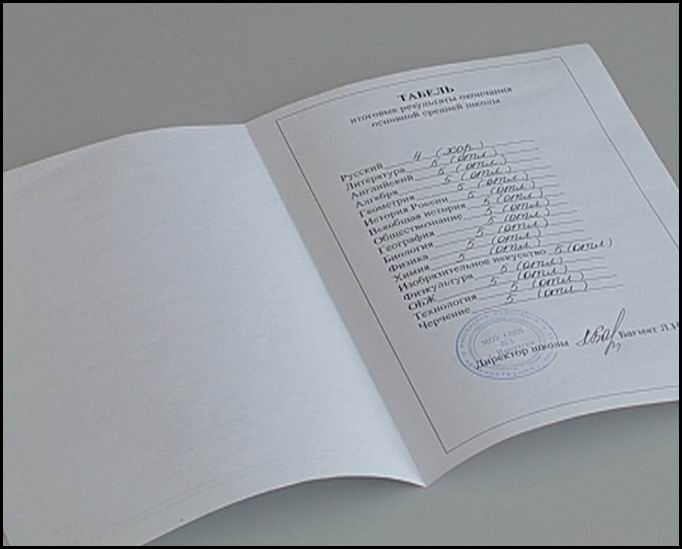 ТАБЕЛЬ
итоговые результаты окончания
основной средней школы
Русский 4 (хор.)
Литература 5 (отл.)
Английский 5 (отл.)
Алгебра 5 (отл.)
Геометрия 5 (отл.)
История России 5 (отл.)
Всеобщая история 5 (отл.)
Обществознание 5 (отл.)
География 5 (отл.)
Биология 5 (отл.)
Физика 5 (отл.)
Химия 5 (отл.)
Изобразительное искусство 5 (отл)
Физкультура 5 (отл.)
ОБЖ 5 (отл.)
Технология 5 (отл.)
Черчение 5 (отл.)
МОУ СОШ
Директор школы Багмят Л.